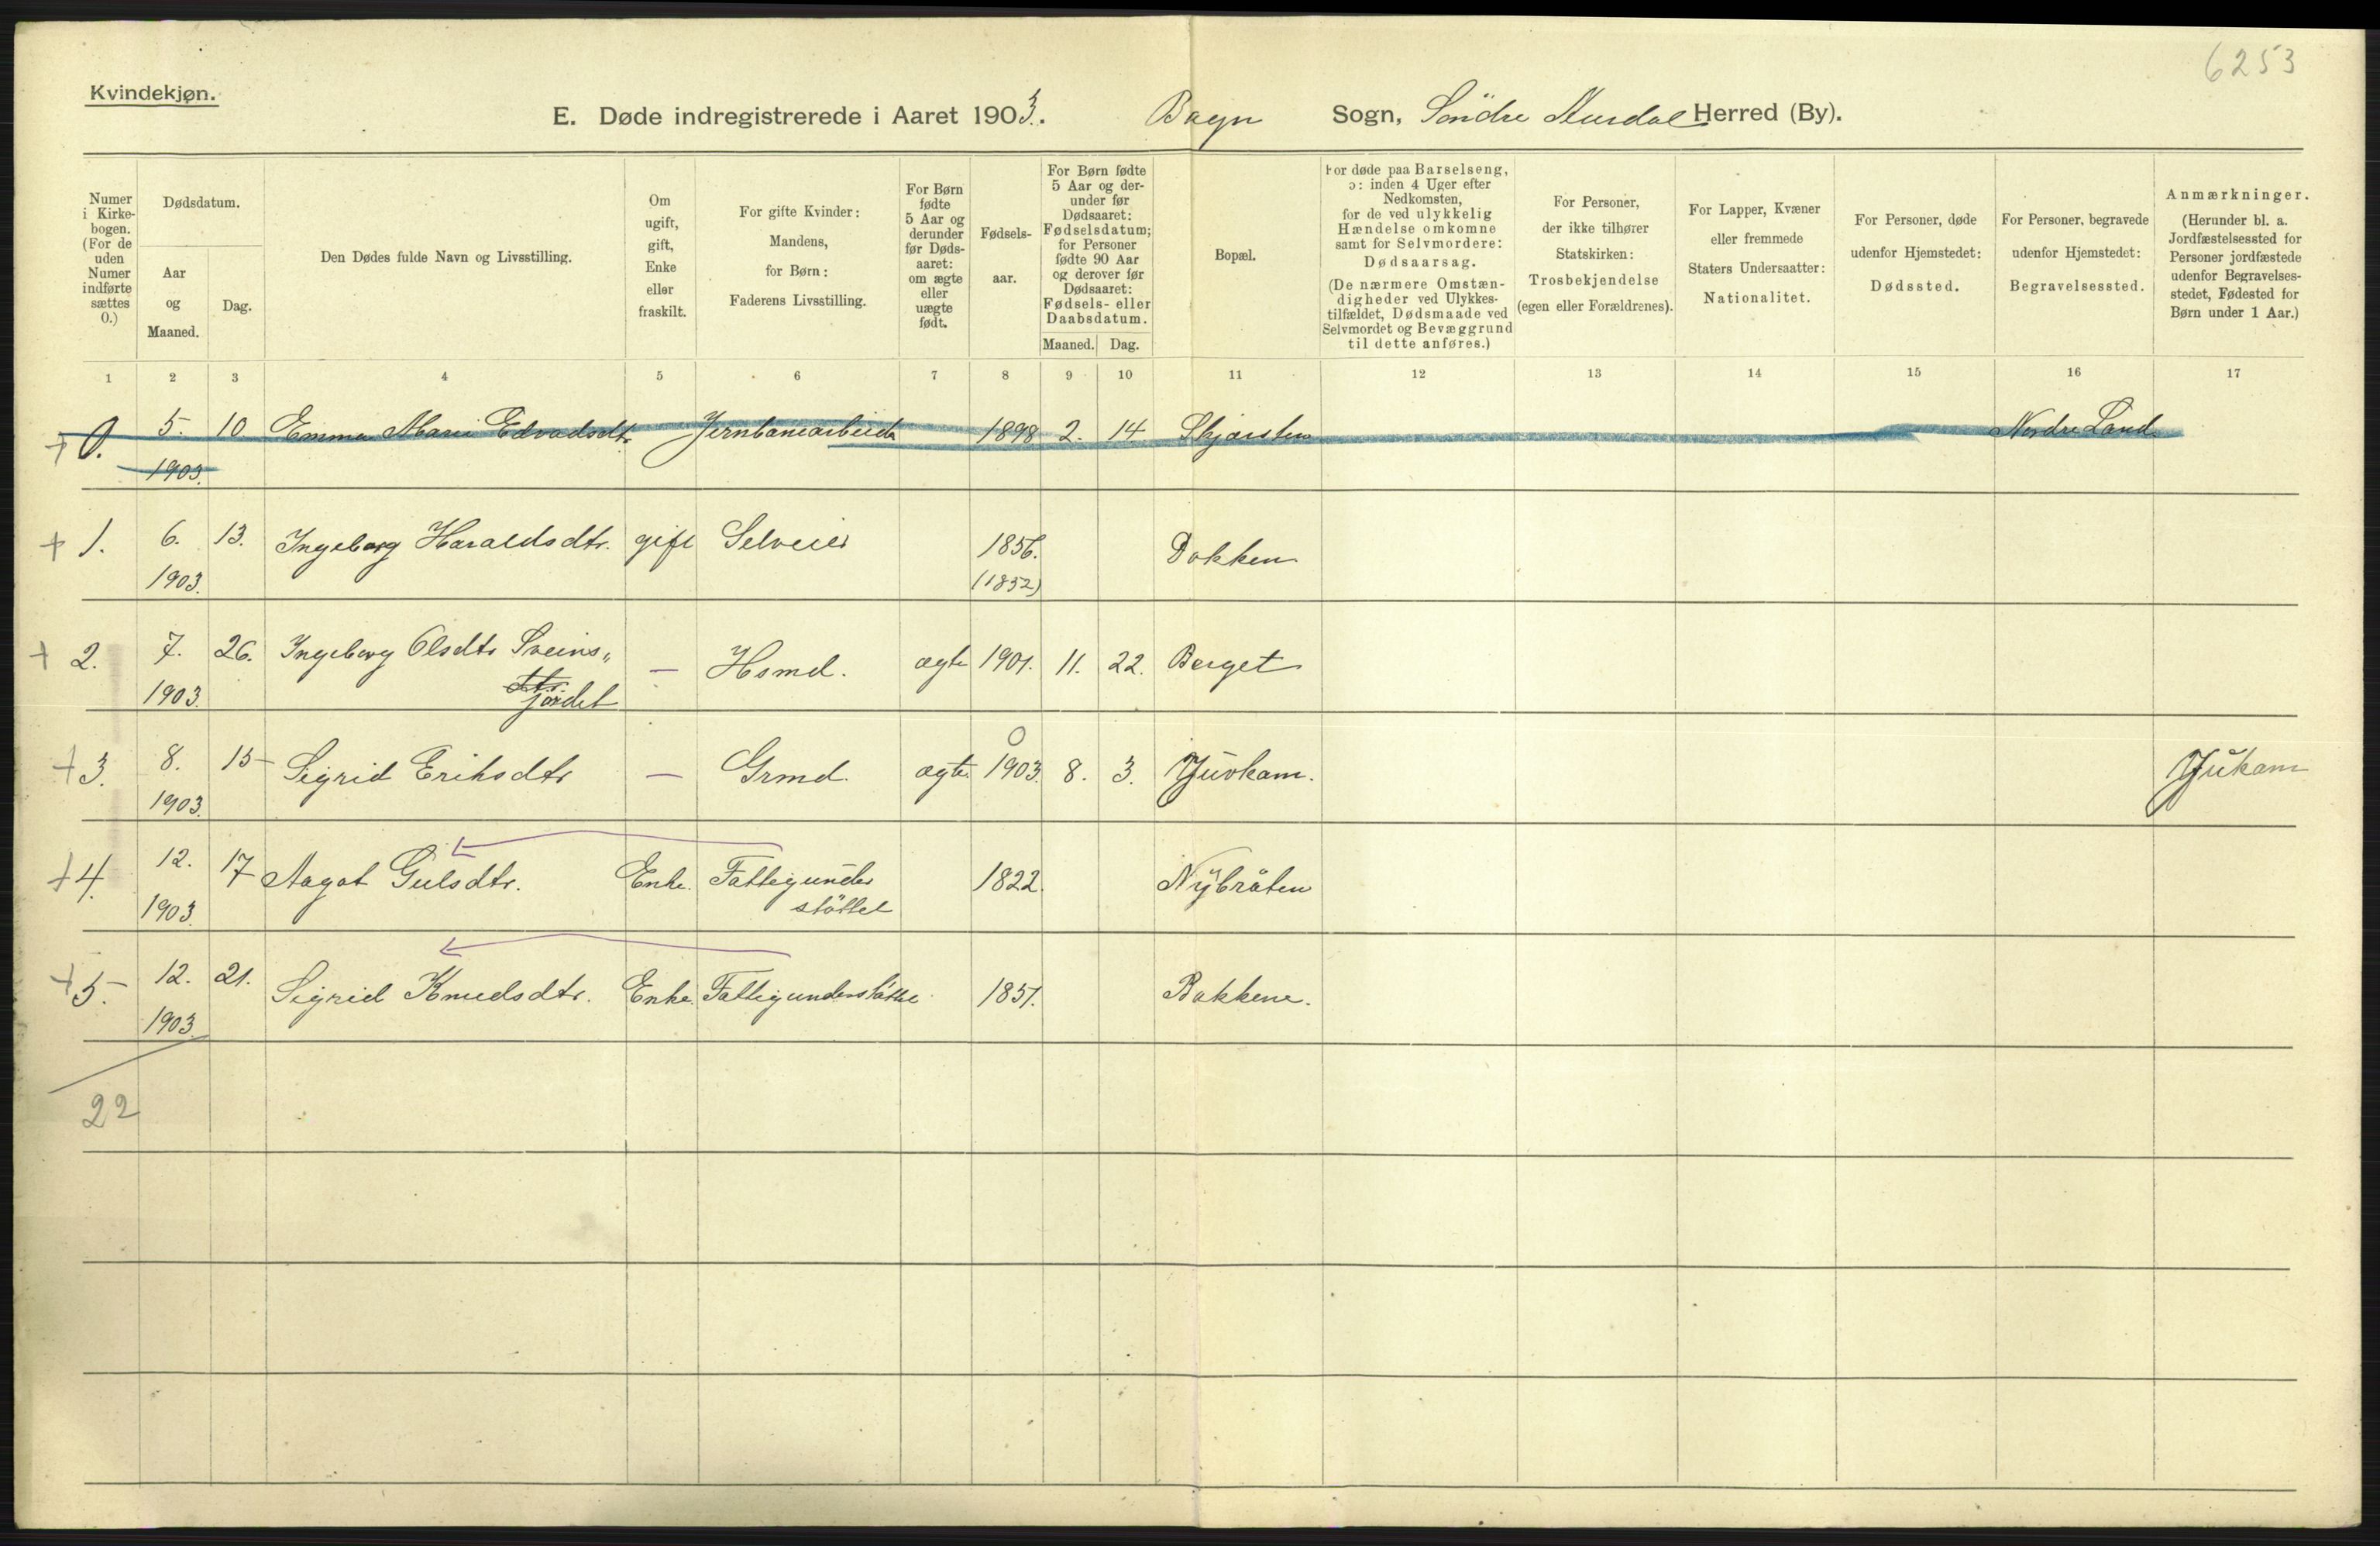 6253
Kvindekjøn.
E. Døde indregistrerede i Aaret 1903. Bagn Sogn, Söndre Aurdal Herred (By).
Numer
i Kirke-
bogen.
(For de
uden
Numer
indførte
sættes
0.)
Dødsdatum.
Aar
og
Maaned.
Dag.
Den Dødes fulde Navn og Livsstilling.
Om
ugift,
gift,
Enke
eller
fraskilt.
For gifte Kvinder:
Mandens,
for Børn:
Faderens Livsstilling.
For Børn
fødte
5 Aar og
derunder
før Døds-
aaret:
om ægte
eller
uægte
født.
Fødsels-
aar.
For Børn fødte
5 Aar og der-
under før
Dødsaaret:
Fødselsdatum;
for Personer
fødte 90 Aar
og derover før
Dødsaaret:
Fødsels- eller
Daabsdatum.
Maaned. Dag.
Bopæl.
For døde paa Barselseng,
ɔ: inden 4 Uger efter
Nedkomsten,
for de ved ulykkelig
Hændelse omkomne
samt for Selvmordere:
Dødsaarsag.
(De nærmere Omstæn-
digheder ved Ulykkes-
tilfældet, Dødsmaade ved
Selvmordet og Bevæggrund
til dette anføres.)
For Personer,
der ikke tilhører
Statskirken:
Trosbekjendelse
(egen eller Forældrenes).
For Lapper, Kvæner
eller fremmede
Staters Undersaatter:
Nationalitet.
For Personer, døde
udenfor Hjemstedet:
Dødssted.
For Personer, begravede
udenfor Hjemstedet:
Begravelsessted.
Anmærkninger.
(Herunder bl. a.
Jordfæstelsessted for
Personer jordfæstede
udenfor Begravelses-
stedet, Fødested for
Børn under 1 Aar.)
1 2 3 4 5 6 7 8 9 10 11 12 13 14 15 16 17
+ 0. 5. 10 Emma Marie Edvadsdtr. Jernbanearbeider 1898 2. 14 Nordre Land
1903.
+ 1. 6. 13. Ingeborg Haraldsdtr. gift Selveier 1856. Dokken
1903. (1852)
+ 2. 7. 26. Ingeborg Olsdtr Sveins„ — Hsmd. ægte 1901. 11. 22. Berget
1903. dtr. jordet
0
+ 3. 8. 15 Sigrid Eriksdtr — Grmd. ægte 1903. 8. 3. Juvkam. Jukam
1903.
+ 4. 12. 17 Aagot Gulsdtr. Enke. Fattigunder 1822. Nybråten
1903. støttet
+ 5. 12. 21. Sigrid Knudsdtr. Enke. Fattigunderstøttet 1851. Bakkene.
1903
22